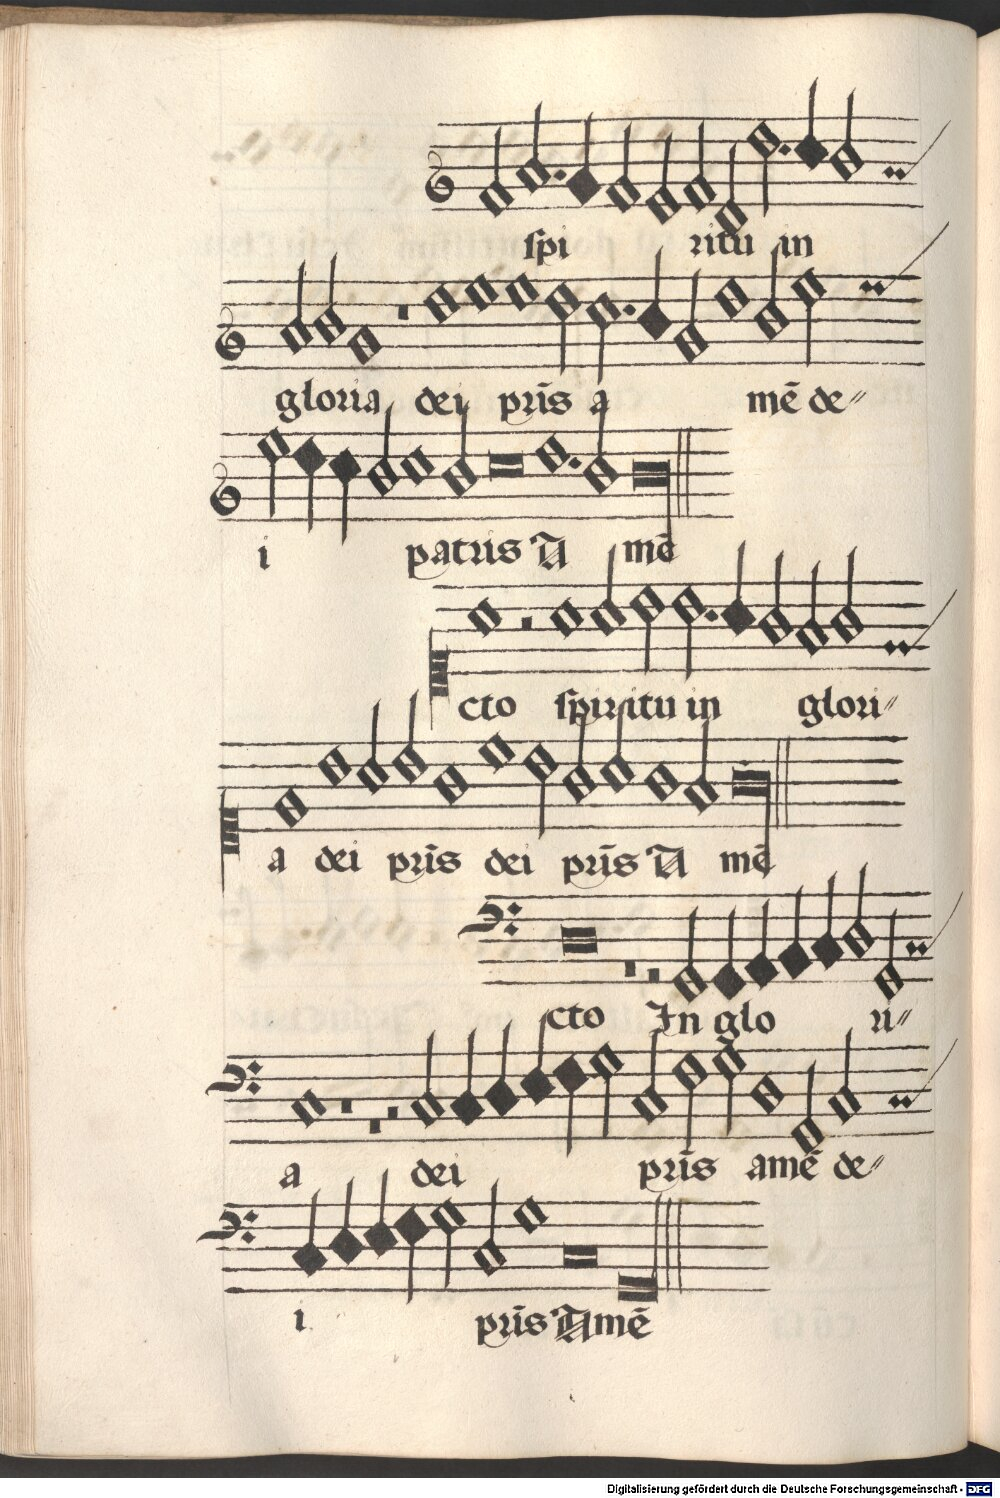 spi ritu in
gloria dei pr̄is a mē de〃
i patris A mē
cto spiritu in glori〃
a dei pr̄is dei pr̄is A mē
cto In glo ri〃
a dei pr̄is amē de〃
i pr̄is Amē
Digitalisierung gefördert durch die Deutsche Forschungsgemeinschaft - DFG